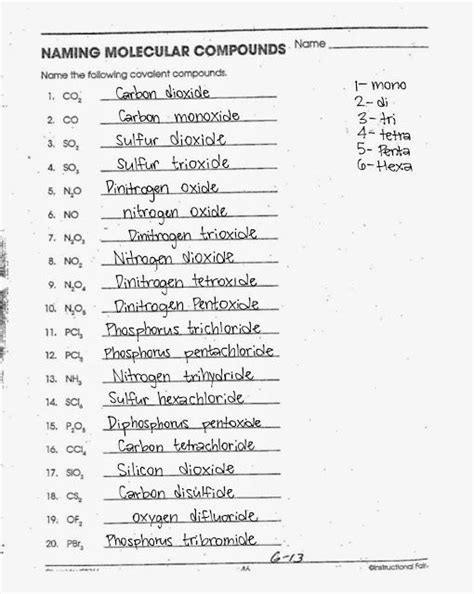 NAMING MOLECULAR COMPOUNDS Name
Name the following covalent compounds.
1. CO₂ Carbon dioxide
1- mono
2. CO Carbon monoxide
2- di
3. SO₂ Sulfur dioxide
3- tri
4. SO₃ Sulfur trioxide
4- tetra
5- Penta
6- Hexa
5. N₂O Dinitrogen oxide
6. NO nitrogen oxide
7. N₂O₃ Dinitrogen trioxide
8. NO₂ Nitrogen dioxide
9. N₂O₄ Dinitrogen tetroxide
10. N₂O₅ Dinitrogen Pentoxide
11. PCl₃ Phosphorus trichloride
12. PCl₅ Phosphorus pentachloride
13. NH₃ Nitrogen trihydride
14. SCl₆ Sulfur hexachloride
15. P₂O₅ Diphosphorus pentoxide
16. CCl₄ Carbon tetrachloride
17. SiO₂ Silicon dioxide
18. CS₂ Carbon disulfide
19. OF₂ oxygen difluoride
20. PBr₃ Phosphorus tribromide
6-13
©Instructional Fair